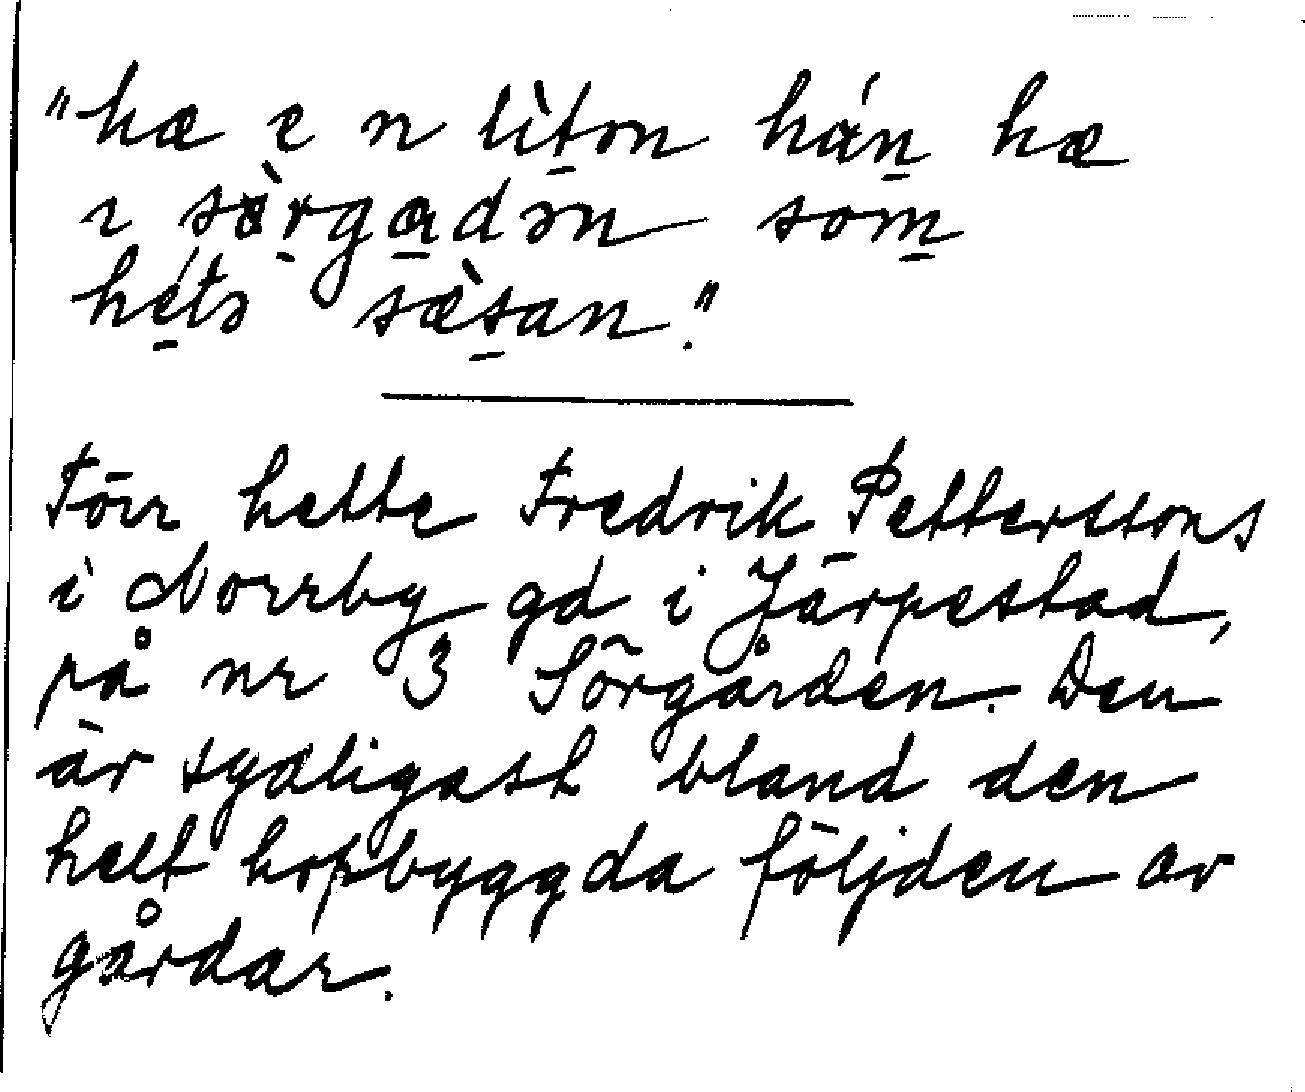 "hæ e n lìt̠on hán̠ hæ
ɩ sö̀r̠ga̠dən som̠
hé̠tə sæ̀s̠an."
Förr hette Fredrik Petterssons
i Norrby gd i Järpestad,
på nr 3 Sörgården. Den
är sydligast bland den
helt hopbyggda följden av
gårdar.